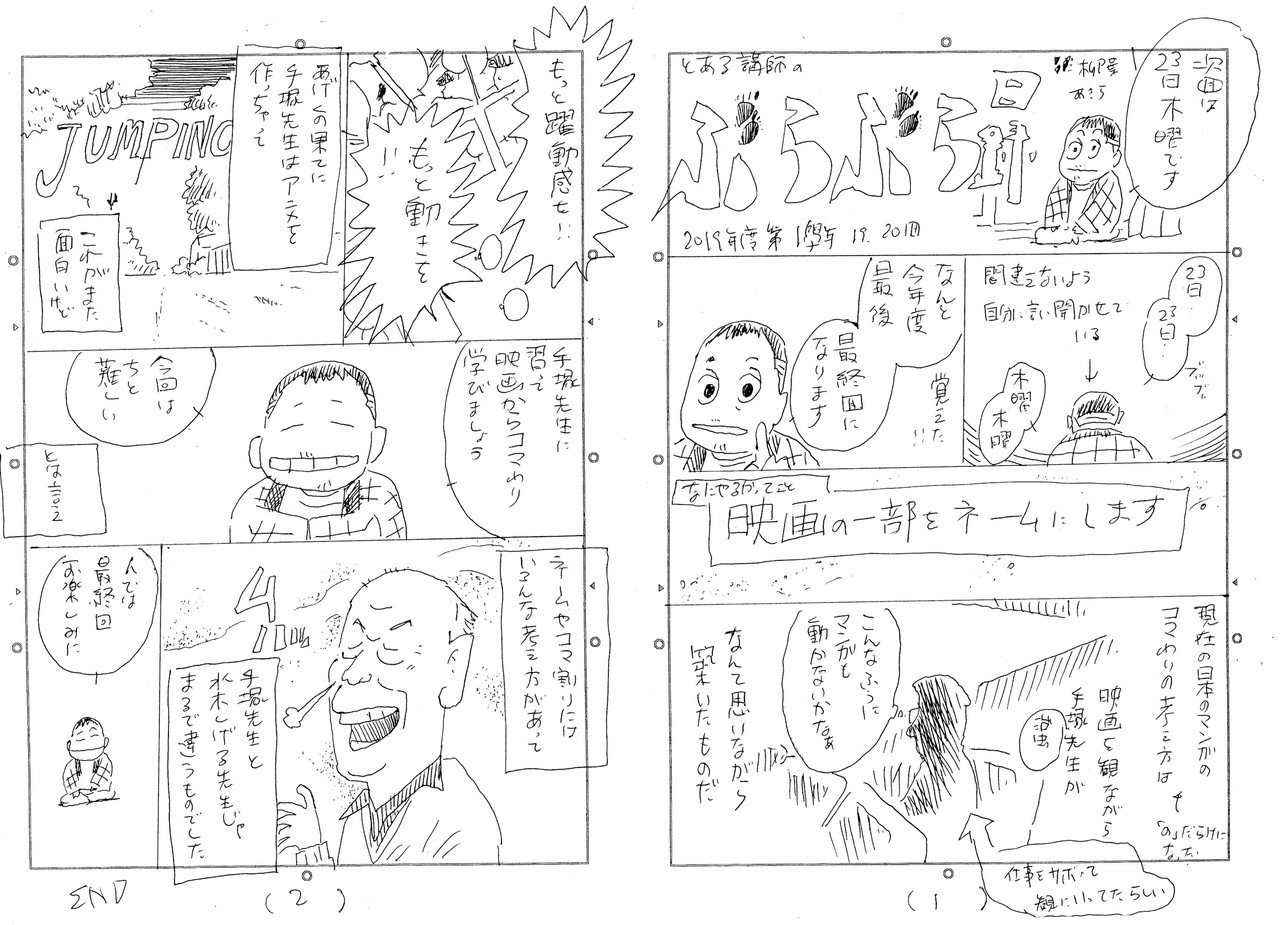 とある講師の
ぶらぶら日
2019年度第1學年 19.20回
次回は
23日木曜です
23日…
23日…
ブツブツ
間違えないよう
自分に言い聞かせて
いる
木曜
木曜
覚えた
!!
なんと
今年度
最後
最終回に
なります
なにやるかってこと
映画の一部をネームにします
現在の日本のマンガの
コマわりの考え方は
「の」だらけに
なった
映画を観ながら
手塚先生が
こんなふうに
マンガも
動かないかなぁ
なんて思いながら
築いたものだ
仕事をサボって
観にいってたらしい
(1)
もっと躍動感を!!
もっと動きを
!!
あげくの果てに
手塚先生はアニメを
作っちゃって
JUMPING
これがまた
面白いけど
手塚先生に
習って
映画からコマわり
学びましょう
今回は
ちと
難しい
とは言え
ネームやコマ割りには
いろんな考え方があって
手塚先生と
水木しげる先生じゃ
まるで違うものでした
んでは
最終回
お楽しみに
END
(2)